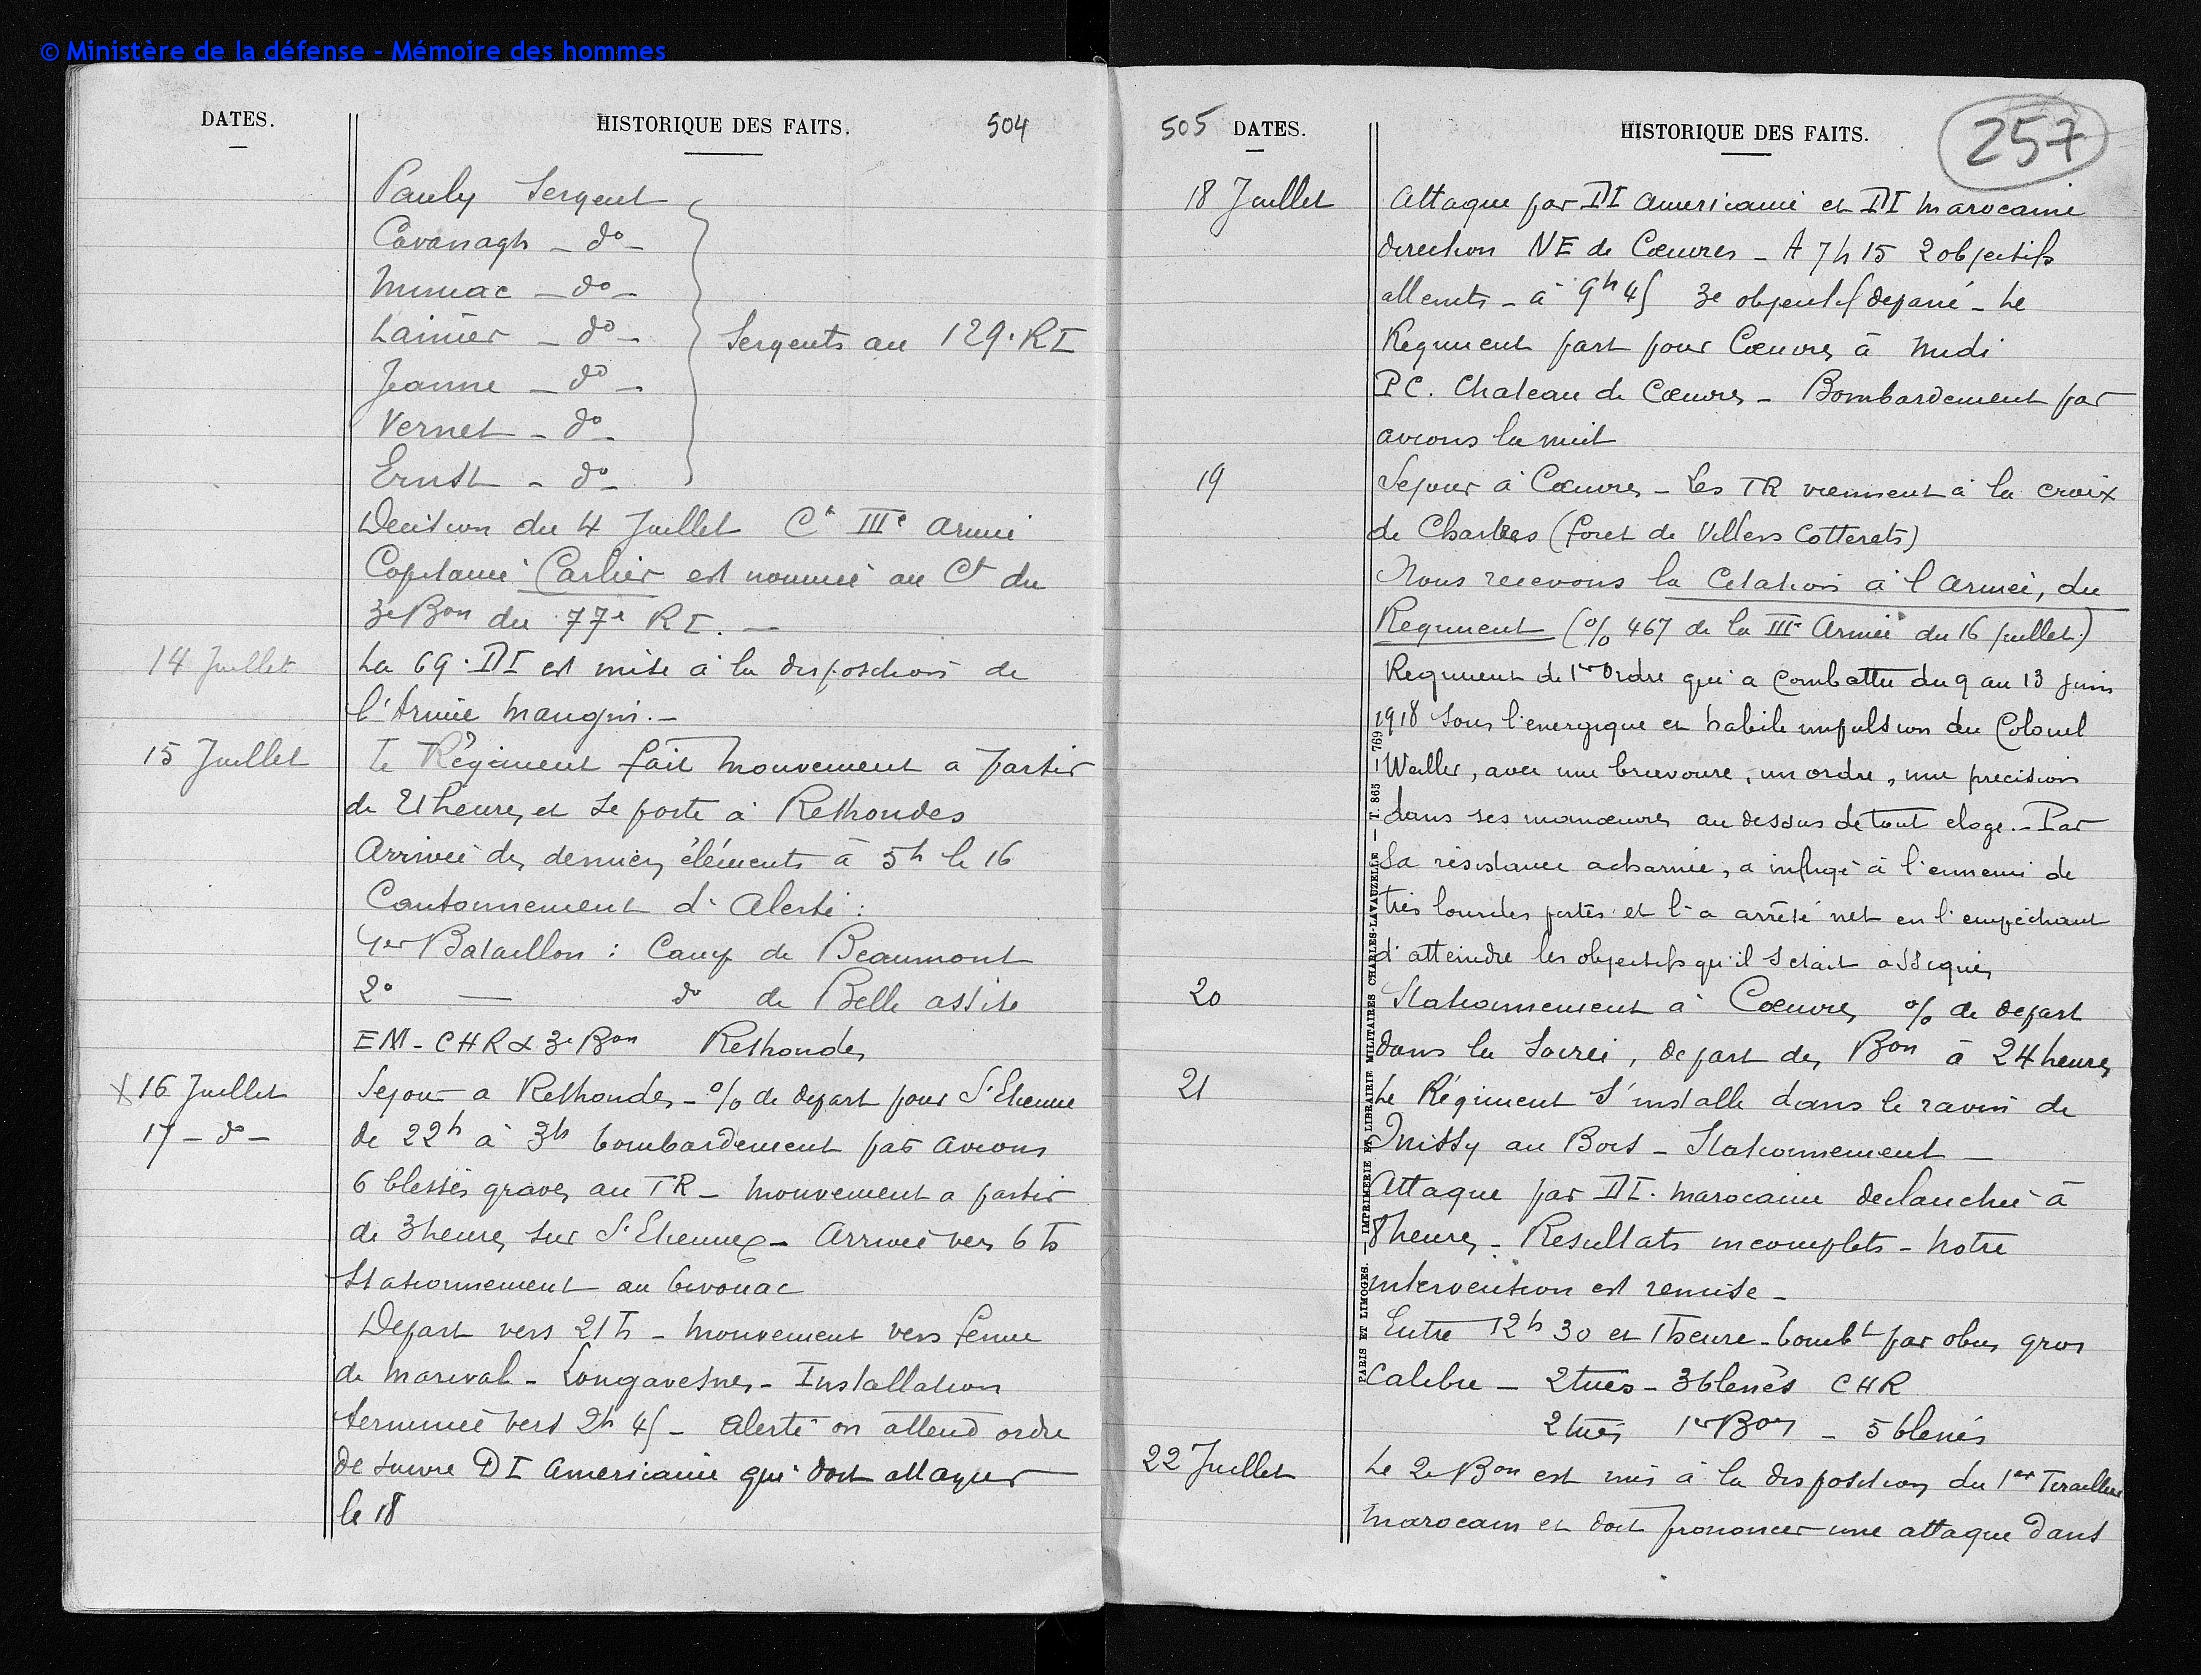 © Ministère de la défense - Mémoire des hommes
DATES.
HISTORIQUE DES FAITS.
504
Pauly Sergent
Cavanagh - do -
- do -
Lainier - do -
Jeanne - do -
Vernet - do -
Ernst - do -
Sergents au 129e RI
Decision du 4 Juillet Ct IIIe Armée
Capitaine Carlier est nommé au Ct du
3e Bon du 77e RI. —
14 Juillet
La 69e DI est mise à la disposition de
l'Armée Mangin. —
15 Juillet
Le Régiment fait mouvement a partir
de 21 heures et se porte à Rethondes
Arrivée des derniers éléments à 5h le 16
Cantonnement d'Alerte :
1er Bataillon : Camp de Beaumont
2e — do de Belle assise
EM - CHR & 3e Bon Rethondes
X 16 Juillet
Sejour a Rethondes - % de depart pour St Etienne
17 - do -
de 22h à 3h bombardement par avions
6 blessés graves au TR - mouvement a partir
de 3 heures sur St Etienne - Arrivée vers 6h
Stationnement au bivouac
Depart vers 21h - mouvement vers ferme
de Marival - Longavesnes - Installation
terminée vers 2h 45 - Alerte on attend ordre
de suivre DI americaine qui doit attaquer
le 18
505
DATES.
HISTORIQUE DES FAITS.
257
18 Juillet
Attaque par DI americaine et DI marocaine
direction NE de Cœuvres - A 7h15 2 objectifs
atteints - à 9h45 3e objectif depassé - Le
Regiment part pour Cœuvres à midi
PC. Chateau de Cœuvres - Bombardement par
avions la nuit
19
Sejour à Cœuvres - Les TR viennent à la croix
de Chartres (foret de Villers Cotterets)
Nous recevons la Citation à l'Armée, du
Regiment (% 467 de la IIIe Armée du 16 juillet.)
Regiment de 1er Ordre qui a combattu du 9 au 13 juin
1918 sous l'energique et habile impulsion du Colonel
Weiller, avec une bravoure, un ordre, une precision
dans ses manœuvres au dessus de tout eloge. - Par
sa résistance acharnée, a infligé à l'ennemi de
très lourdes pertes et l'a arrêté net en l'empêchant
d'atteindre les objectifs qu'il s'etait assignés
20
Stationnement à Cœuvres % de depart
dans la soirée, depart des Bon à 24 heures
21
Le Régiment s'installe dans le ravin de
Missy au Bois - Stationnement —
Attaque par DI. marocaine declanchée à
8 heures - Resultats incomplets - notre
intervention est remise -
Entre 12h30 et 1heure - bombt par obus gros
Calibre - 2 tués - 3 blessés CHR
2 tués 1er Bon - 5 blessés
22 Juillet
Le 2e Bon est mis à la disposition du 1er Tirailleur
marocain et doit prononcer une attaque dans
PARIS ET LIMOGES. — IMPRIMERIE ET LIBRAIRIE MILITAIRES CHARLES-LAVAUZELLE — T. 865 — 769